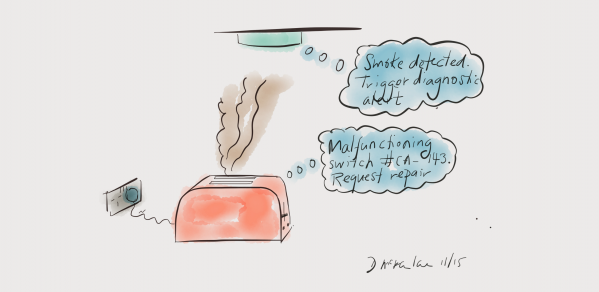 Smoke detected.
Trigger diagnostic
alert
Malfunctioning
switch #CA-143.
Request repair
11/15